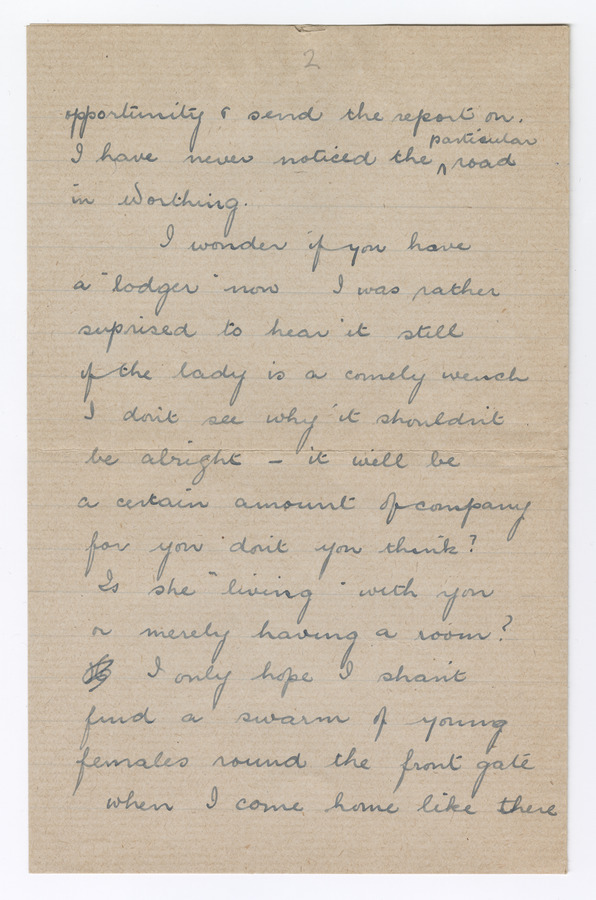 2
opportunity & send the report on.
I have never noticed the ^ particular road
in Worthing.
I wonder if you have
a "lodger" now I was rather
suprised to hear it still
if the lady is a comely wench
I don't see why it shouldn't
be alright - it will be
a certain amount of company
for you don't you think?
Is she "living" with you
or merely having a room?
I only hope I shan't
find a swarm of young
females round the front gate
when I come home like there